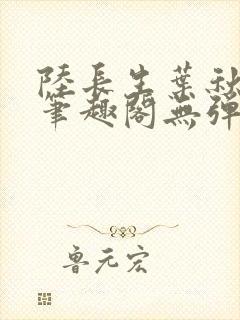 陸長生葉秋
筆趣閣無彈
魯元宏